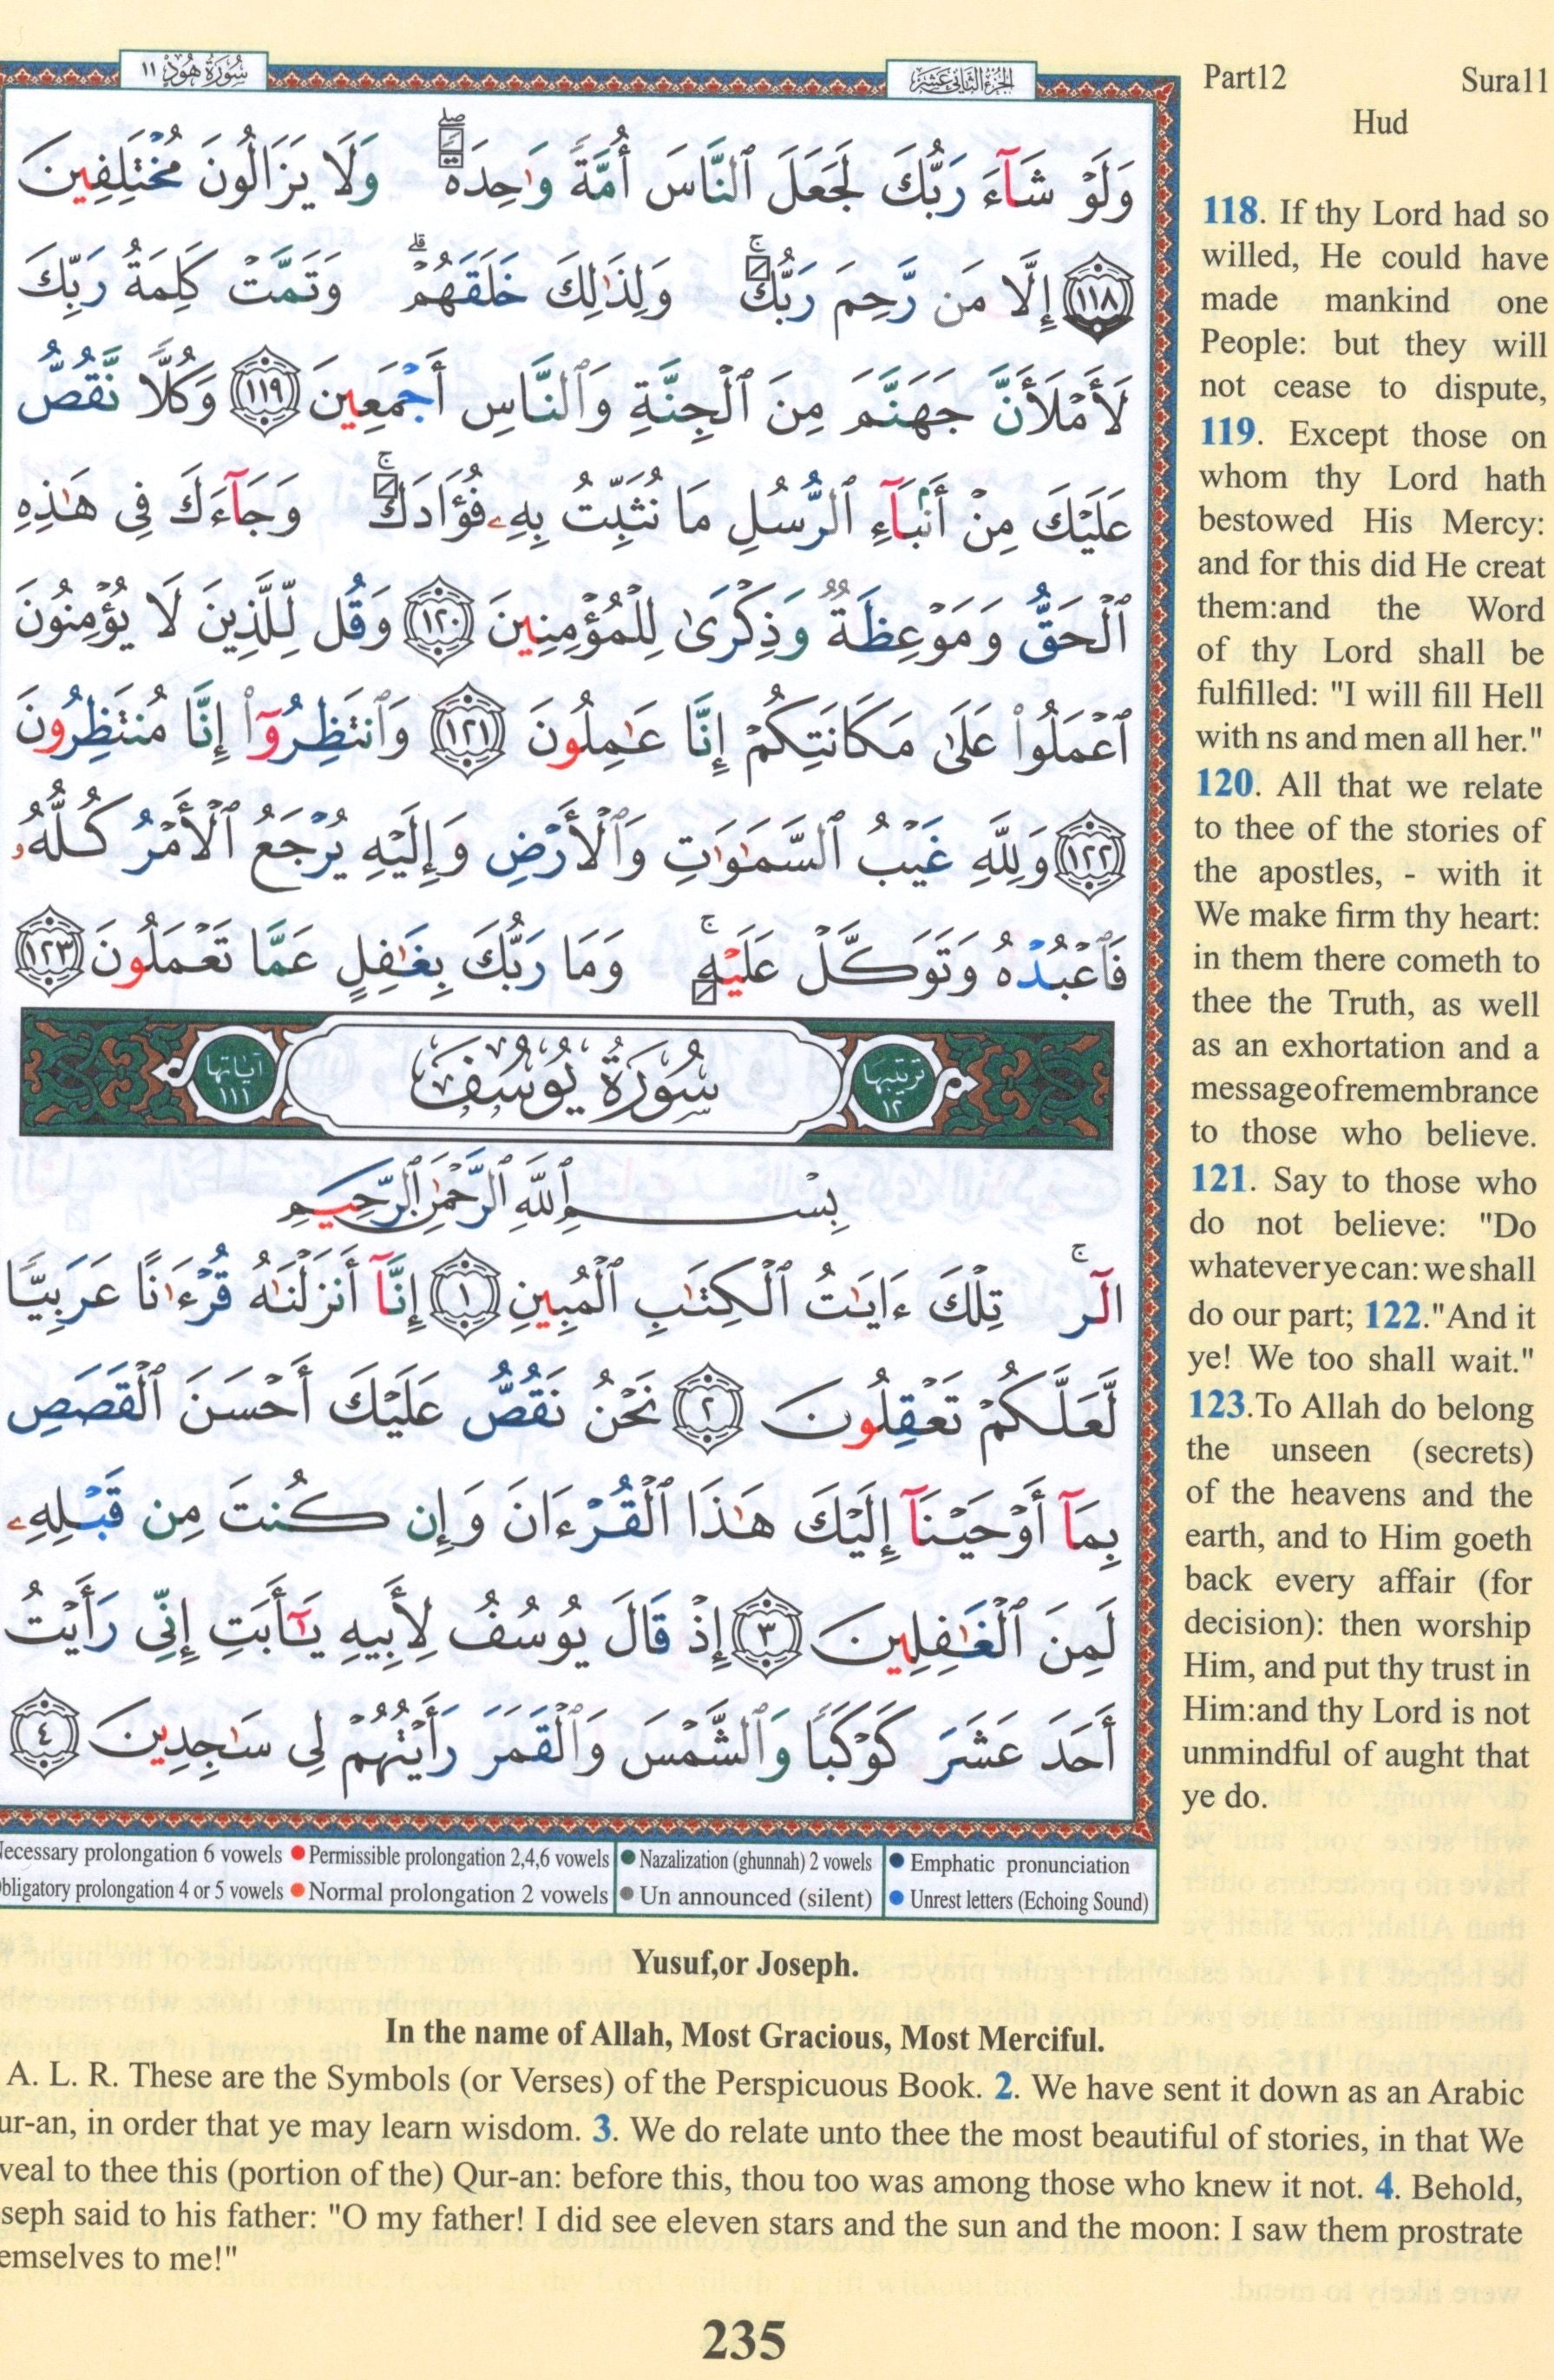 سُورَةُ هُودٍ ١١
الجزء الثاني عشر
Part12 Sura11
Hud
وَلَوْ شَآءَ رَبُّكَ لَجَعَلَ ٱلنَّاسَ أُمَّةً وَٰحِدَةً ۖ وَلَا يَزَالُونَ مُخْتَلِفِينَ
١١٨ إِلَّا مَن رَّحِمَ رَبُّكَ ۚ وَلِذَٰلِكَ خَلَقَهُمْ ۗ وَتَمَّتْ كَلِمَةُ رَبِّكَ
لَأَمْلَأَنَّ جَهَنَّمَ مِنَ ٱلْجِنَّةِ وَٱلنَّاسِ أَجْمَعِينَ ١١٩ وَكُلًّا نَّقُصُّ
عَلَيْكَ مِنْ أَنۢبَآءِ ٱلرُّسُلِ مَا نُثَبِّتُ بِهِۦ فُؤَادَكَ ۚ وَجَآءَكَ فِى هَٰذِهِ
ٱلْحَقُّ وَمَوْعِظَةٌ وَذِكْرَىٰ لِلْمُؤْمِنِينَ ١٢٠ وَقُل لِّلَّذِينَ لَا يُؤْمِنُونَ
ٱعْمَلُوا۟ عَلَىٰ مَكَانَتِكُمْ إِنَّا عَٰمِلُونَ ١٢١ وَٱنتَظِرُوٓا۟ إِنَّا مُنتَظِرُونَ
١٢٢ وَلِلَّهِ غَيْبُ ٱلسَّمَٰوَٰتِ وَٱلْأَرْضِ وَإِلَيْهِ يُرْجَعُ ٱلْأَمْرُ كُلُّهُۥ
فَٱعْبُدْهُ وَتَوَكَّلْ عَلَيْهِ ۚ وَمَا رَبُّكَ بِغَٰفِلٍ عَمَّا تَعْمَلُونَ ١٢٣
ترتيبها ١٢
سُورَةُ يُوسُفَ
آياتها ١١١
بِسْمِ ٱللَّهِ ٱلرَّحْمَٰنِ ٱلرَّحِيمِ
الٓر ۚ تِلْكَ ءَايَٰتُ ٱلْكِتَٰبِ ٱلْمُبِينِ ١ إِنَّآ أَنزَلْنَٰهُ قُرْءَٰنًا عَرَبِيًّا
لَّعَلَّكُمْ تَعْقِلُونَ ٢ نَحْنُ نَقُصُّ عَلَيْكَ أَحْسَنَ ٱلْقَصَصِ
بِمَآ أَوْحَيْنَآ إِلَيْكَ هَٰذَا ٱلْقُرْءَانَ وَإِن كُنتَ مِن قَبْلِهِۦ
لَمِنَ ٱلْغَٰفِلِينَ ٣ إِذْ قَالَ يُوسُفُ لِأَبِيهِ يَٰٓأَبَتِ إِنِّى رَأَيْتُ
أَحَدَ عَشَرَ كَوْكَبًا وَٱلشَّمْسَ وَٱلْقَمَرَ رَأَيْتُهُمْ لِى سَٰجِدِينَ ٤
118. If thy Lord had so
willed, He could have
made mankind one
People: but they will
not cease to dispute,
119. Except those on
whom thy Lord hath
bestowed His Mercy:
and for this did He creat
them:and the Word
of thy Lord shall be
fulfilled: "I will fill Hell
with ns and men all her."
120. All that we relate
to thee of the stories of
the apostles, - with it
We make firm thy heart:
in them there cometh to
thee the Truth, as well
as an exhortation and a
messageofremembrance
to those who believe.
121. Say to those who
do not believe: "Do
whatever ye can: we shall
do our part; 122."And it
ye! We too shall wait."
123.To Allah do belong
the unseen (secrets)
of the heavens and the
earth, and to Him goeth
back every affair (for
decision): then worship
Him, and put thy trust in
Him:and thy Lord is not
unmindful of aught that
ye do.
ecessary prolongation 6 vowels Permissible prolongation 2,4,6 vowels Nazalization (ghunnah) 2 vowels Emphatic pronunciation
bligatory prolongation 4 or 5 vowels Normal prolongation 2 vowels Un announced (silent) Unrest letters (Echoing Sound)
Yusuf,or Joseph.
In the name of Allah, Most Gracious, Most Merciful.
A. L. R. These are the Symbols (or Verses) of the Perspicuous Book. 2. We have sent it down as an Arabic
ur-an, in order that ye may learn wisdom. 3. We do relate unto thee the most beautiful of stories, in that We
veal to thee this (portion of the) Qur-an: before this, thou too was among those who knew it not. 4. Behold,
seph said to his father: "O my father! I did see eleven stars and the sun and the moon: I saw them prostrate
emselves to me!"
235